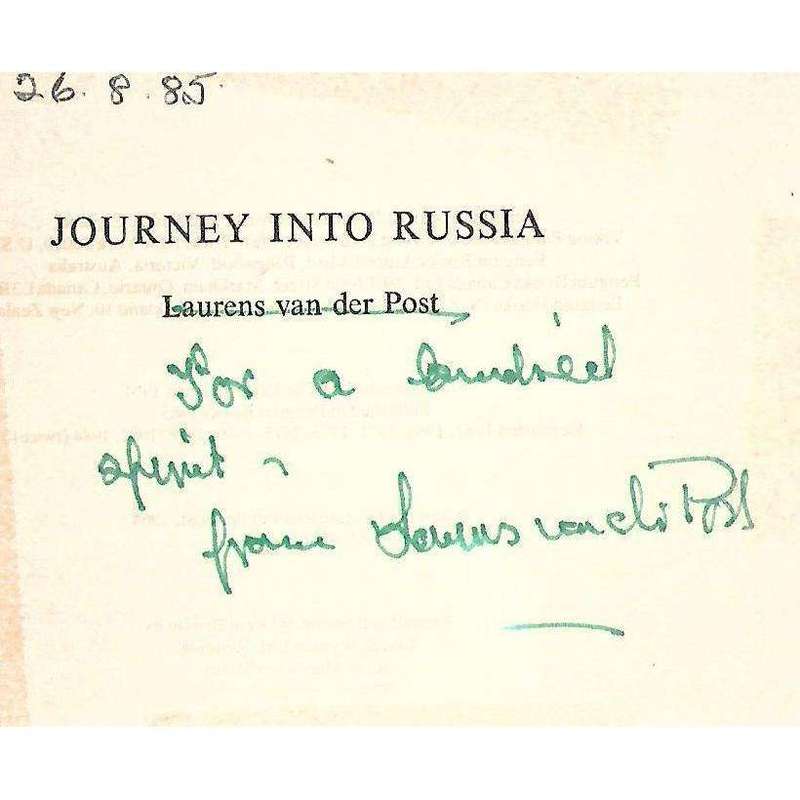 26.8.85
JOURNEY INTO RUSSIA
Laurens van der Post
For a kindred
spirit -
from Laurens van der Post